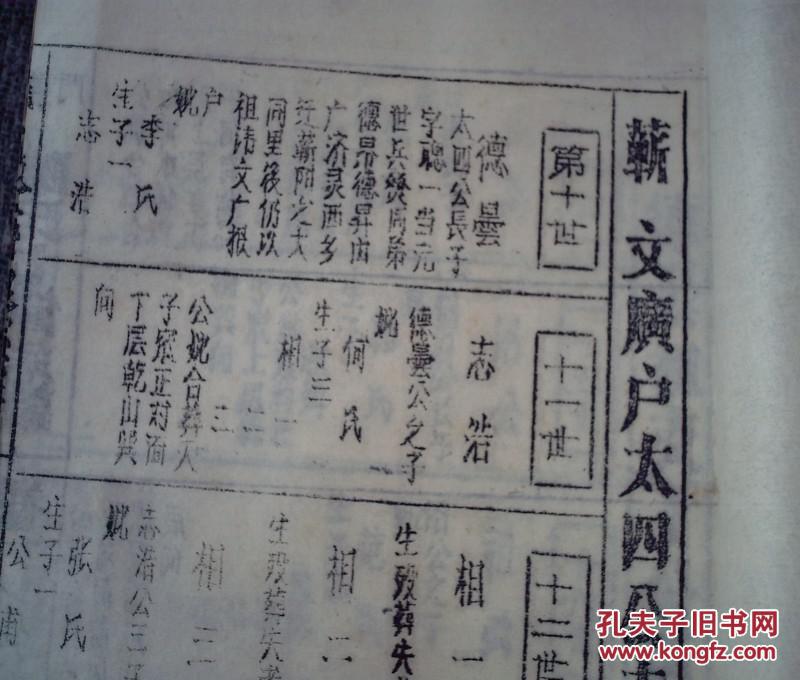 蕲 文廣户太四公
第十世
德曇
太四公長子
字聰一当元
世兵燹同弟
德昂德昇由
广济灵西乡
迁蕲阳之大
同里後仍以
祖讳文广报
户
妣
李氏
生子一
志浩
十一世
志浩
德曇公之子
妣
何氏
生子三
相一
二
三
公妣合葬天
子殡正对面
下层乾山巽
向
十二世
相一
生殁葬失
相二
生殁葬失
相三
志浩公三子
妣
张氏
生子一
公甫
孔夫子旧书网
www.kongfz.com